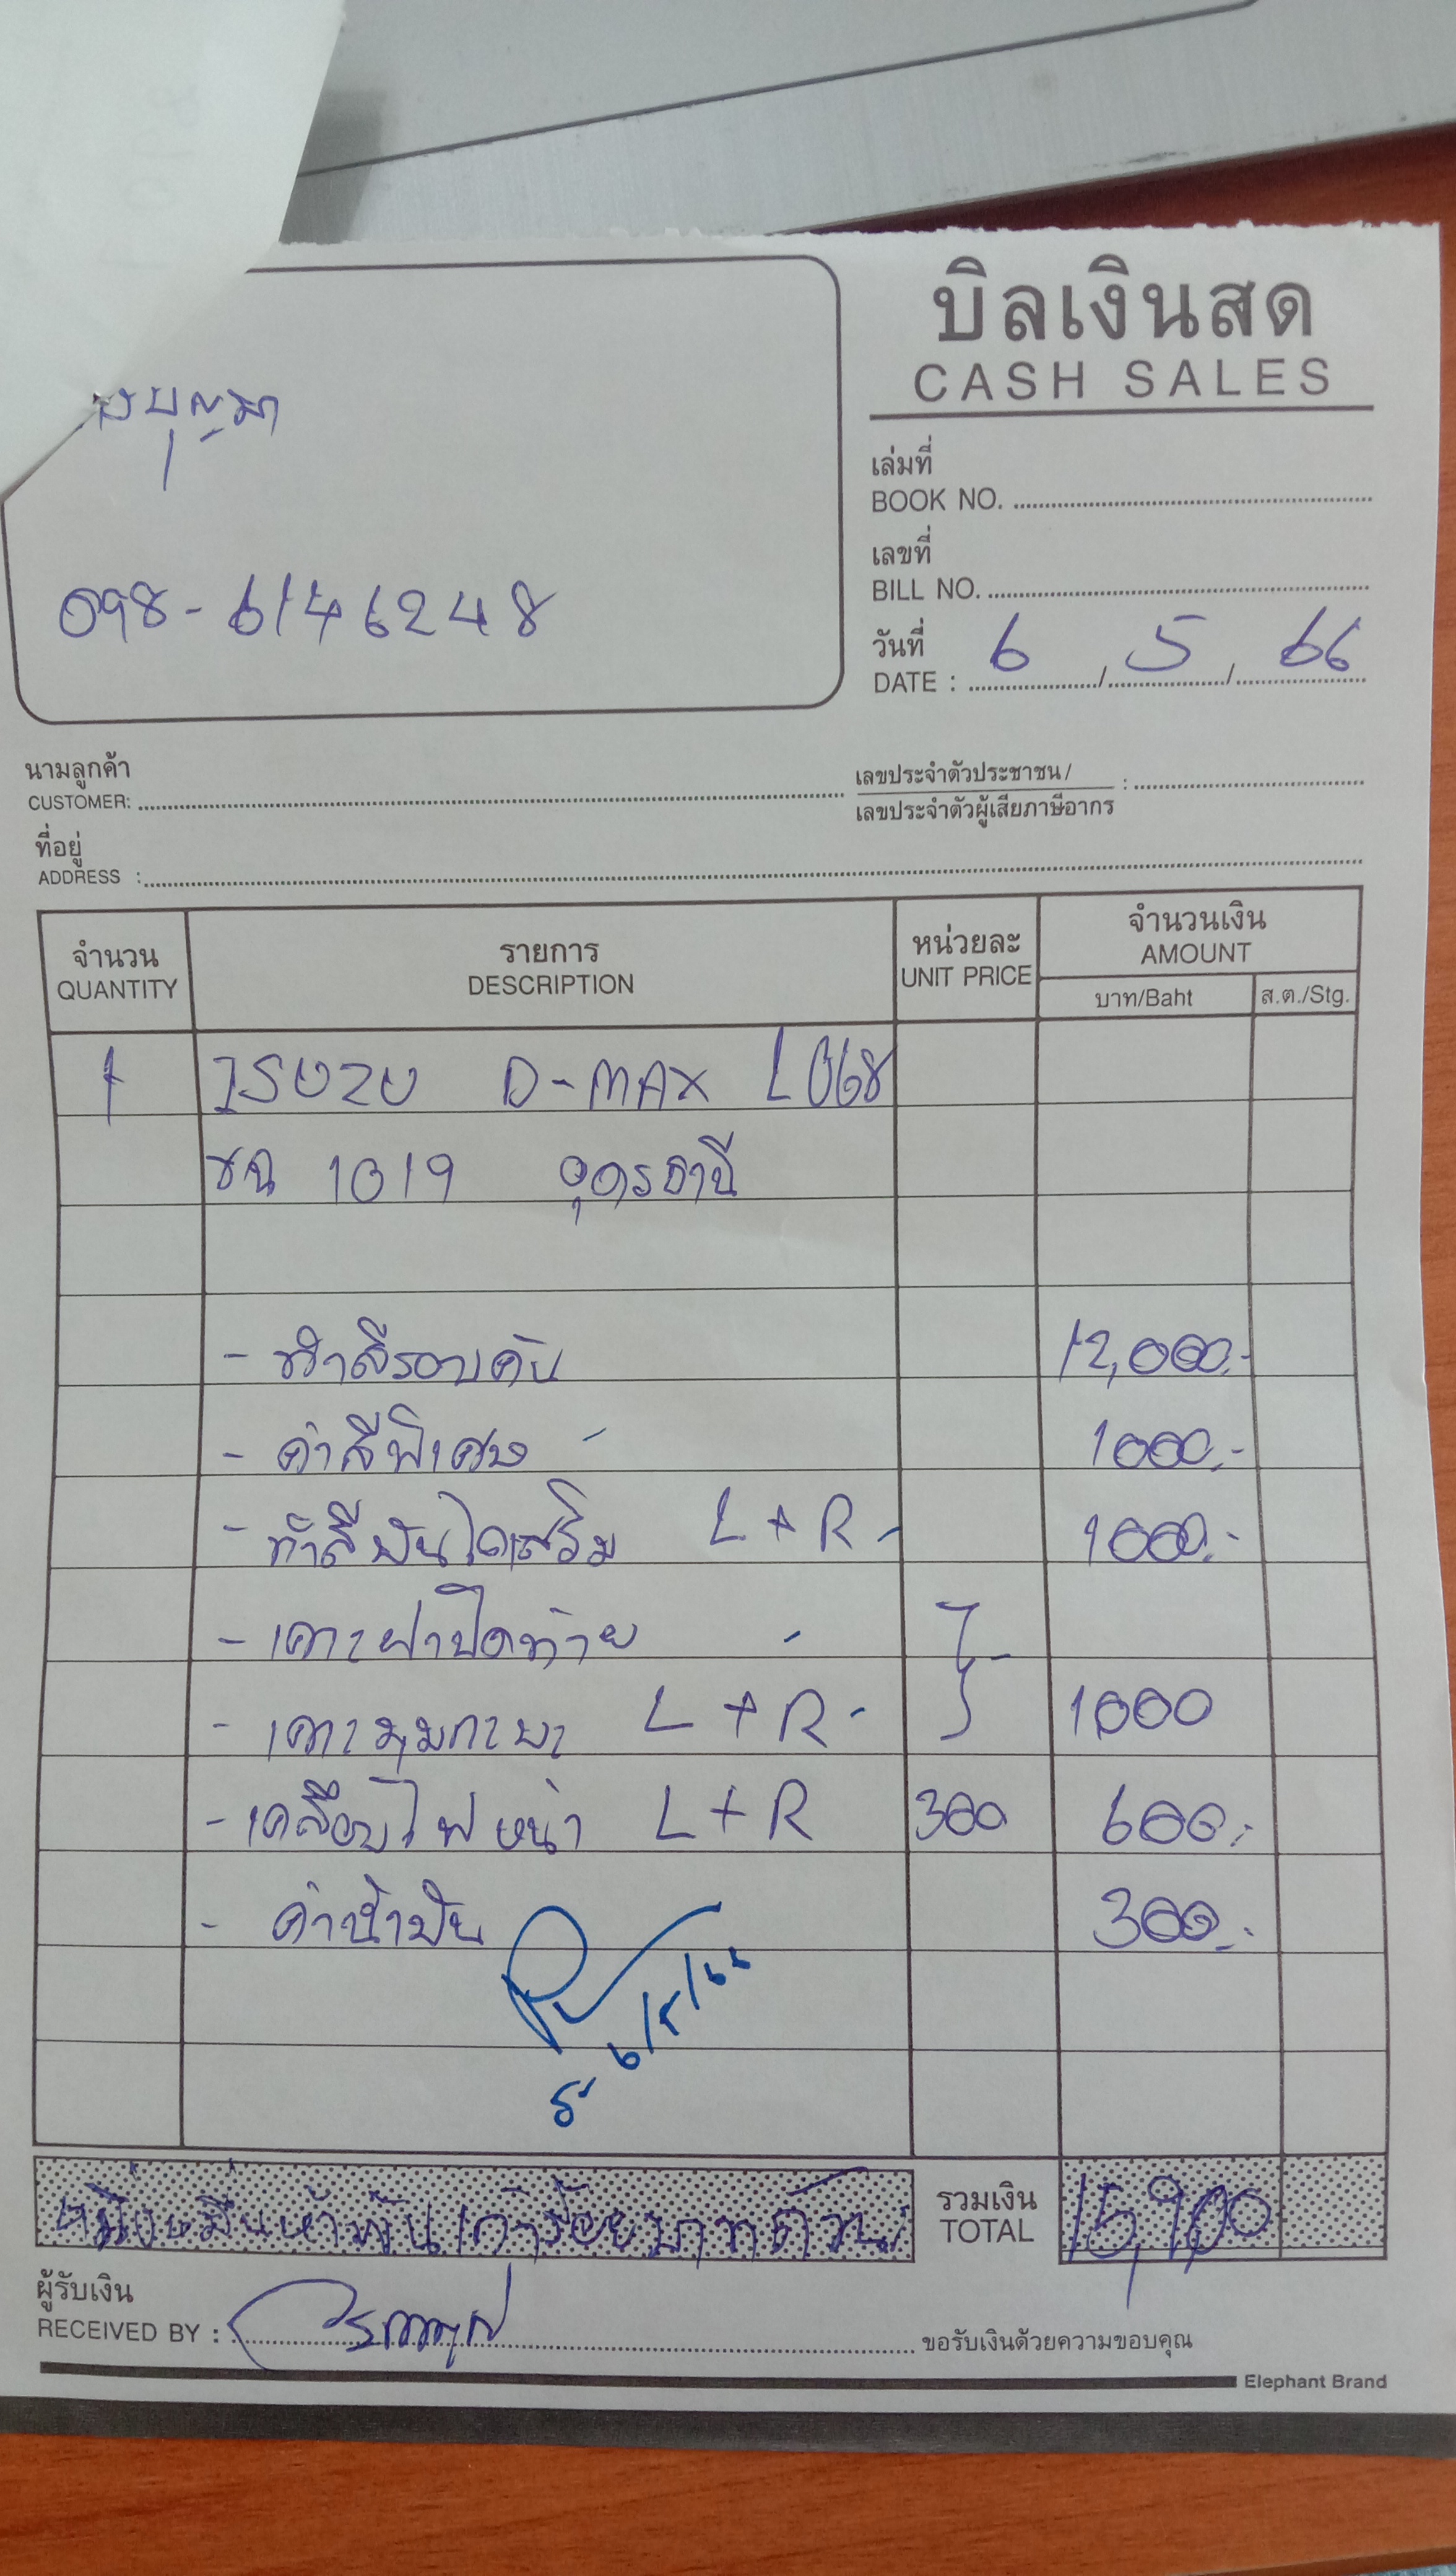 บิลเงินสด
CASH SALES
บุญมา
098-6146248
เล่มที่
BOOK NO.
เลขที่
BILL NO.
วันที่
DATE : 6 / 5 / 66
นามลูกค้า
CUSTOMER:
เลขประจำตัวประชาชน /
เลขประจำตัวผู้เสียภาษีอากร :
ที่อยู่
ADDRESS :
จำนวน รายการ หน่วยละ จำนวนเงิน
QUANTITY DESCRIPTION UNIT PRICE AMOUNT
บาท/Baht ส.ต./Stg.
1 ISUZU D-MAX L068
ขฉ 1019 อุดรธานี
- ทำสีรอบคัน 12,000.-
- ค่าสีพิเศษ 1000.-
- ทำสีบันไดเสริม L+R 1000.-
- เคาะฝาปิดท้าย
- เคาะมุมกะบะ L+R 1000
- เคลือบไฟหน้า L+R 300 600.-
- ค่าน้ำมัน 300.-
6/5/66
หนึ่งหมื่นห้าพันเก้าร้อยบาทถ้วน
รวมเงิน
TOTAL 15,900
ผู้รับเงิน
RECEIVED BY : ขอรับเงินด้วยความขอบคุณ
Elephant Brand